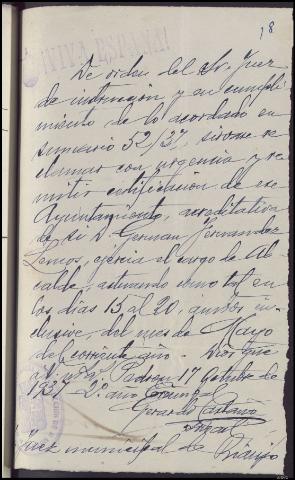 18
¡VIVA ESPAÑA!
De orden del Sr. Juez
de instrucción y en cumpli
miento de lo acordado en
sumario 52/37, sirvase re
clamar con urgencia y re
mitir certificacion de ese
Ayuntamiento, acreditativa
de si D. German Fernandez
Lemos, ejercia el cargo de Al
calde, actuando como tal en
los dias 15 al 20, ambos in
clusive, del mes de Mayo
del corriente año. Dios gue
a V. m. a. Padron 17 Octubre de
1937 2º año
Gerardo
Juez municipal de Rianjo